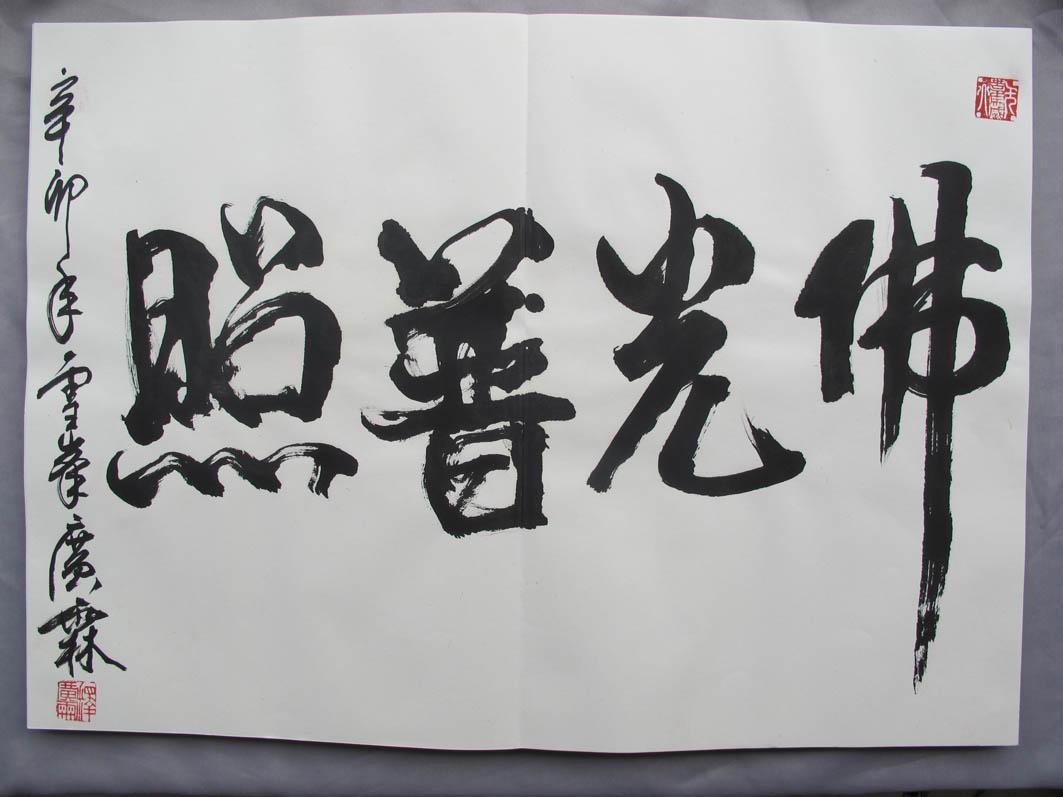 佛光普照
辛卯年雪峯廣霖